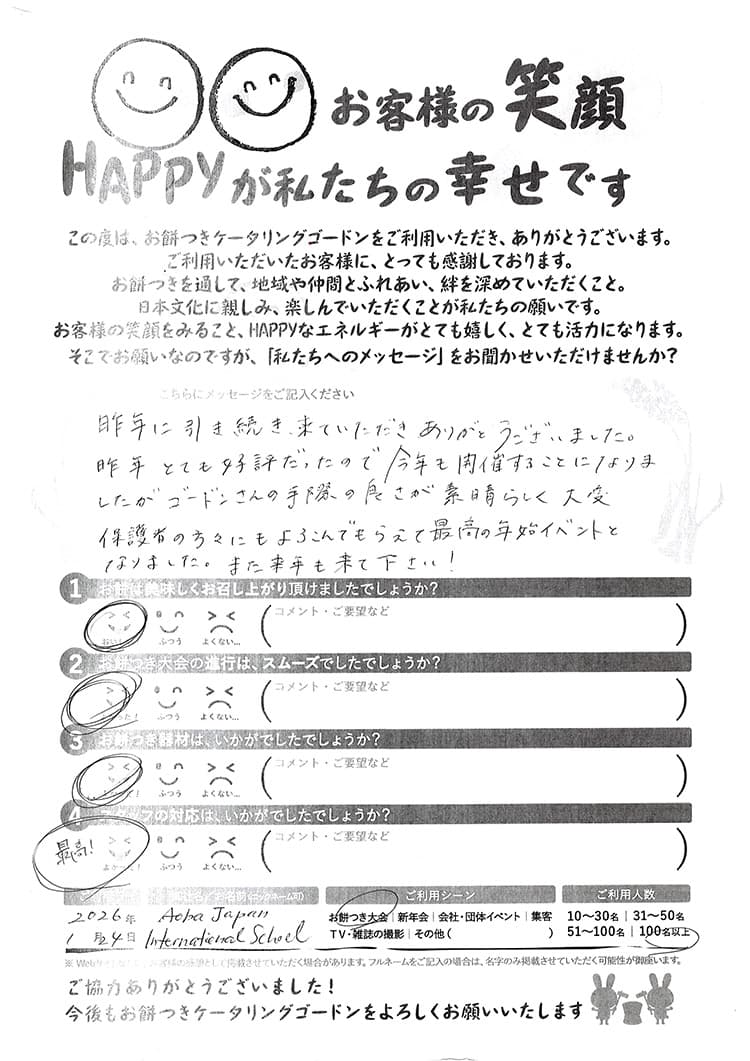 お客様の笑顔
HAPPYが私たちの幸せです
この度は、お餅つきケータリングゴードンをご利用いただき、ありがとうございます。
ご利用いただいたお客様に、とっても感謝しております。
お餅つきを通して、地域や仲間とふれあい、絆を深めていただくこと。
日本文化に親しみ、楽しんでいただくことが私たちの願いです。
お客様の笑顔をみること、HAPPYなエネルギーがとても嬉しく、とても活力になります。
そこでお願いなのですが、「私たちへのメッセージ」をお聞かせいただけませんか？
こちらにメッセージをご記入ください
昨年に引き続き、来ていただきありがとうございました。
昨年とても好評だったので今年も開催することになりま
したがゴードンさんの手際の良さが素晴らしく大変
保護者の方々にもよろこんでもらえて最高の年始イベントと
なりました。また来年も来て下さい！
1 お餅は美味しくお召し上がり頂けましたでしょうか？
コメント・ご要望など
おいし ふつう よくない…
2 お餅つき大会の進行は、スムーズでしたでしょうか？
コメント・ご要望など
った！ ふつう よくない…
3 お餅つき器材は、いかがでしたでしょうか？
コメント・ご要望など
！ ふつう よくない…
4 スタッフの対応は、いかがでしたでしょうか？
コメント・ご要望など
最高！
よかって！ ふつう よくない…
(ニックネーム可) ご利用シーン ご利用人数
2026年 Aoba Japan お餅つき大会｜新年会｜会社・団体イベント｜集客 10〜30名｜31〜50名
1月24日 International School TV・雑誌の撮影｜その他( ) 51〜100名｜100名以上
※ Webサイト お客様の感想として掲載させていただく場合があります。フルネームをご記入の場合は、名字のみ掲載させていただく可能性が御座います。
ご協力ありがとうございました！
今後もお餅つきケータリングゴードンをよろしくお願いいたします